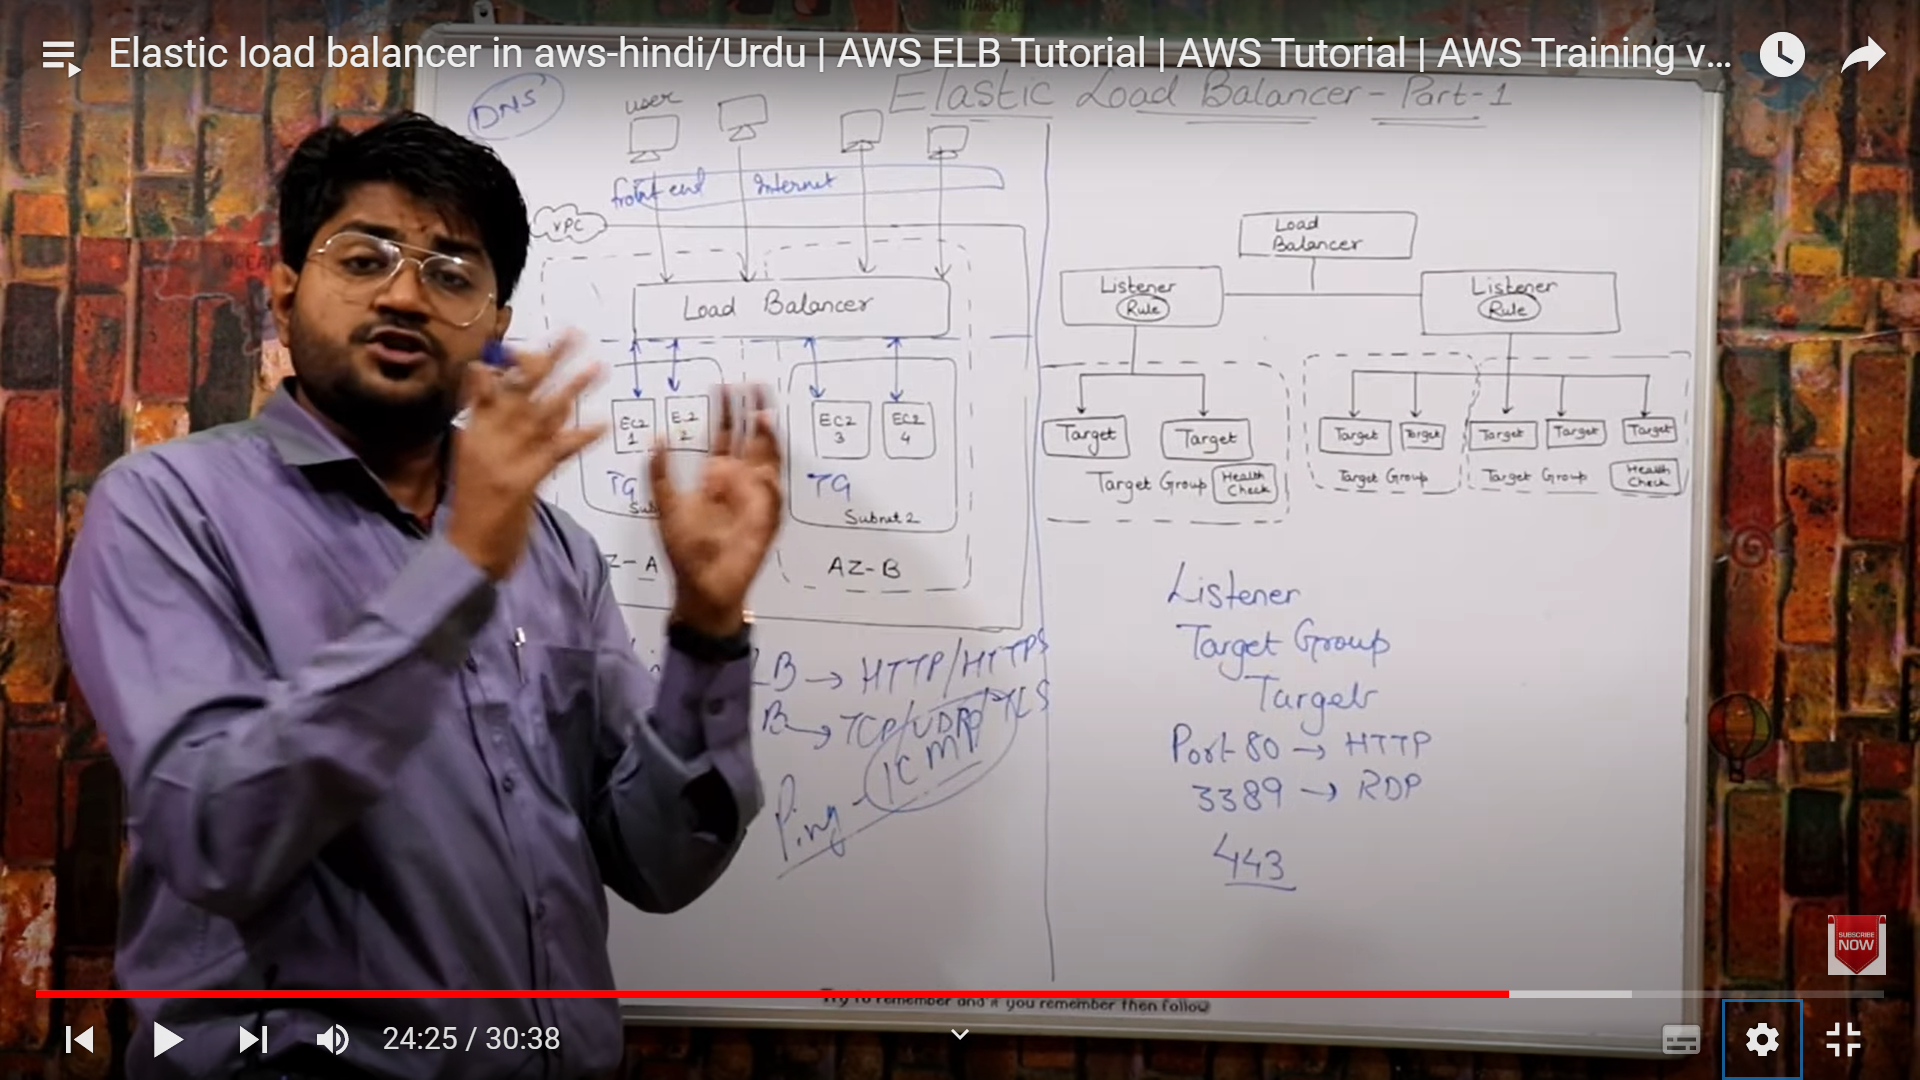 Elastic load balancer in aws-hindi/Urdu | AWS ELB Tutorial | AWS Tutorial | AWS Training v...
Elastic Load Balancer - Part-1
DNS
user
front end Internet
VPC
Load Balancer
EC2
1
2
EC2
3
EC2
4
TG
TG
Subnet 2
A
AZ-B
LB → HTTP/HTTPS
B → TCP/UDP/TLS
Ping - ICMP
Load
Balancer
Listener
Rule
Listener
Rule
Target
Target
Target Group
Health
Check
Target
Target
Target
Target
Target
Target Group
Target Group
Health
Check
Listener
Target Group
Targets
Port 80 → HTTP
3389 → RDP
443
Try to remember and if you remember then follow
SUBSCRIBE
NOW
24:25 / 30:38